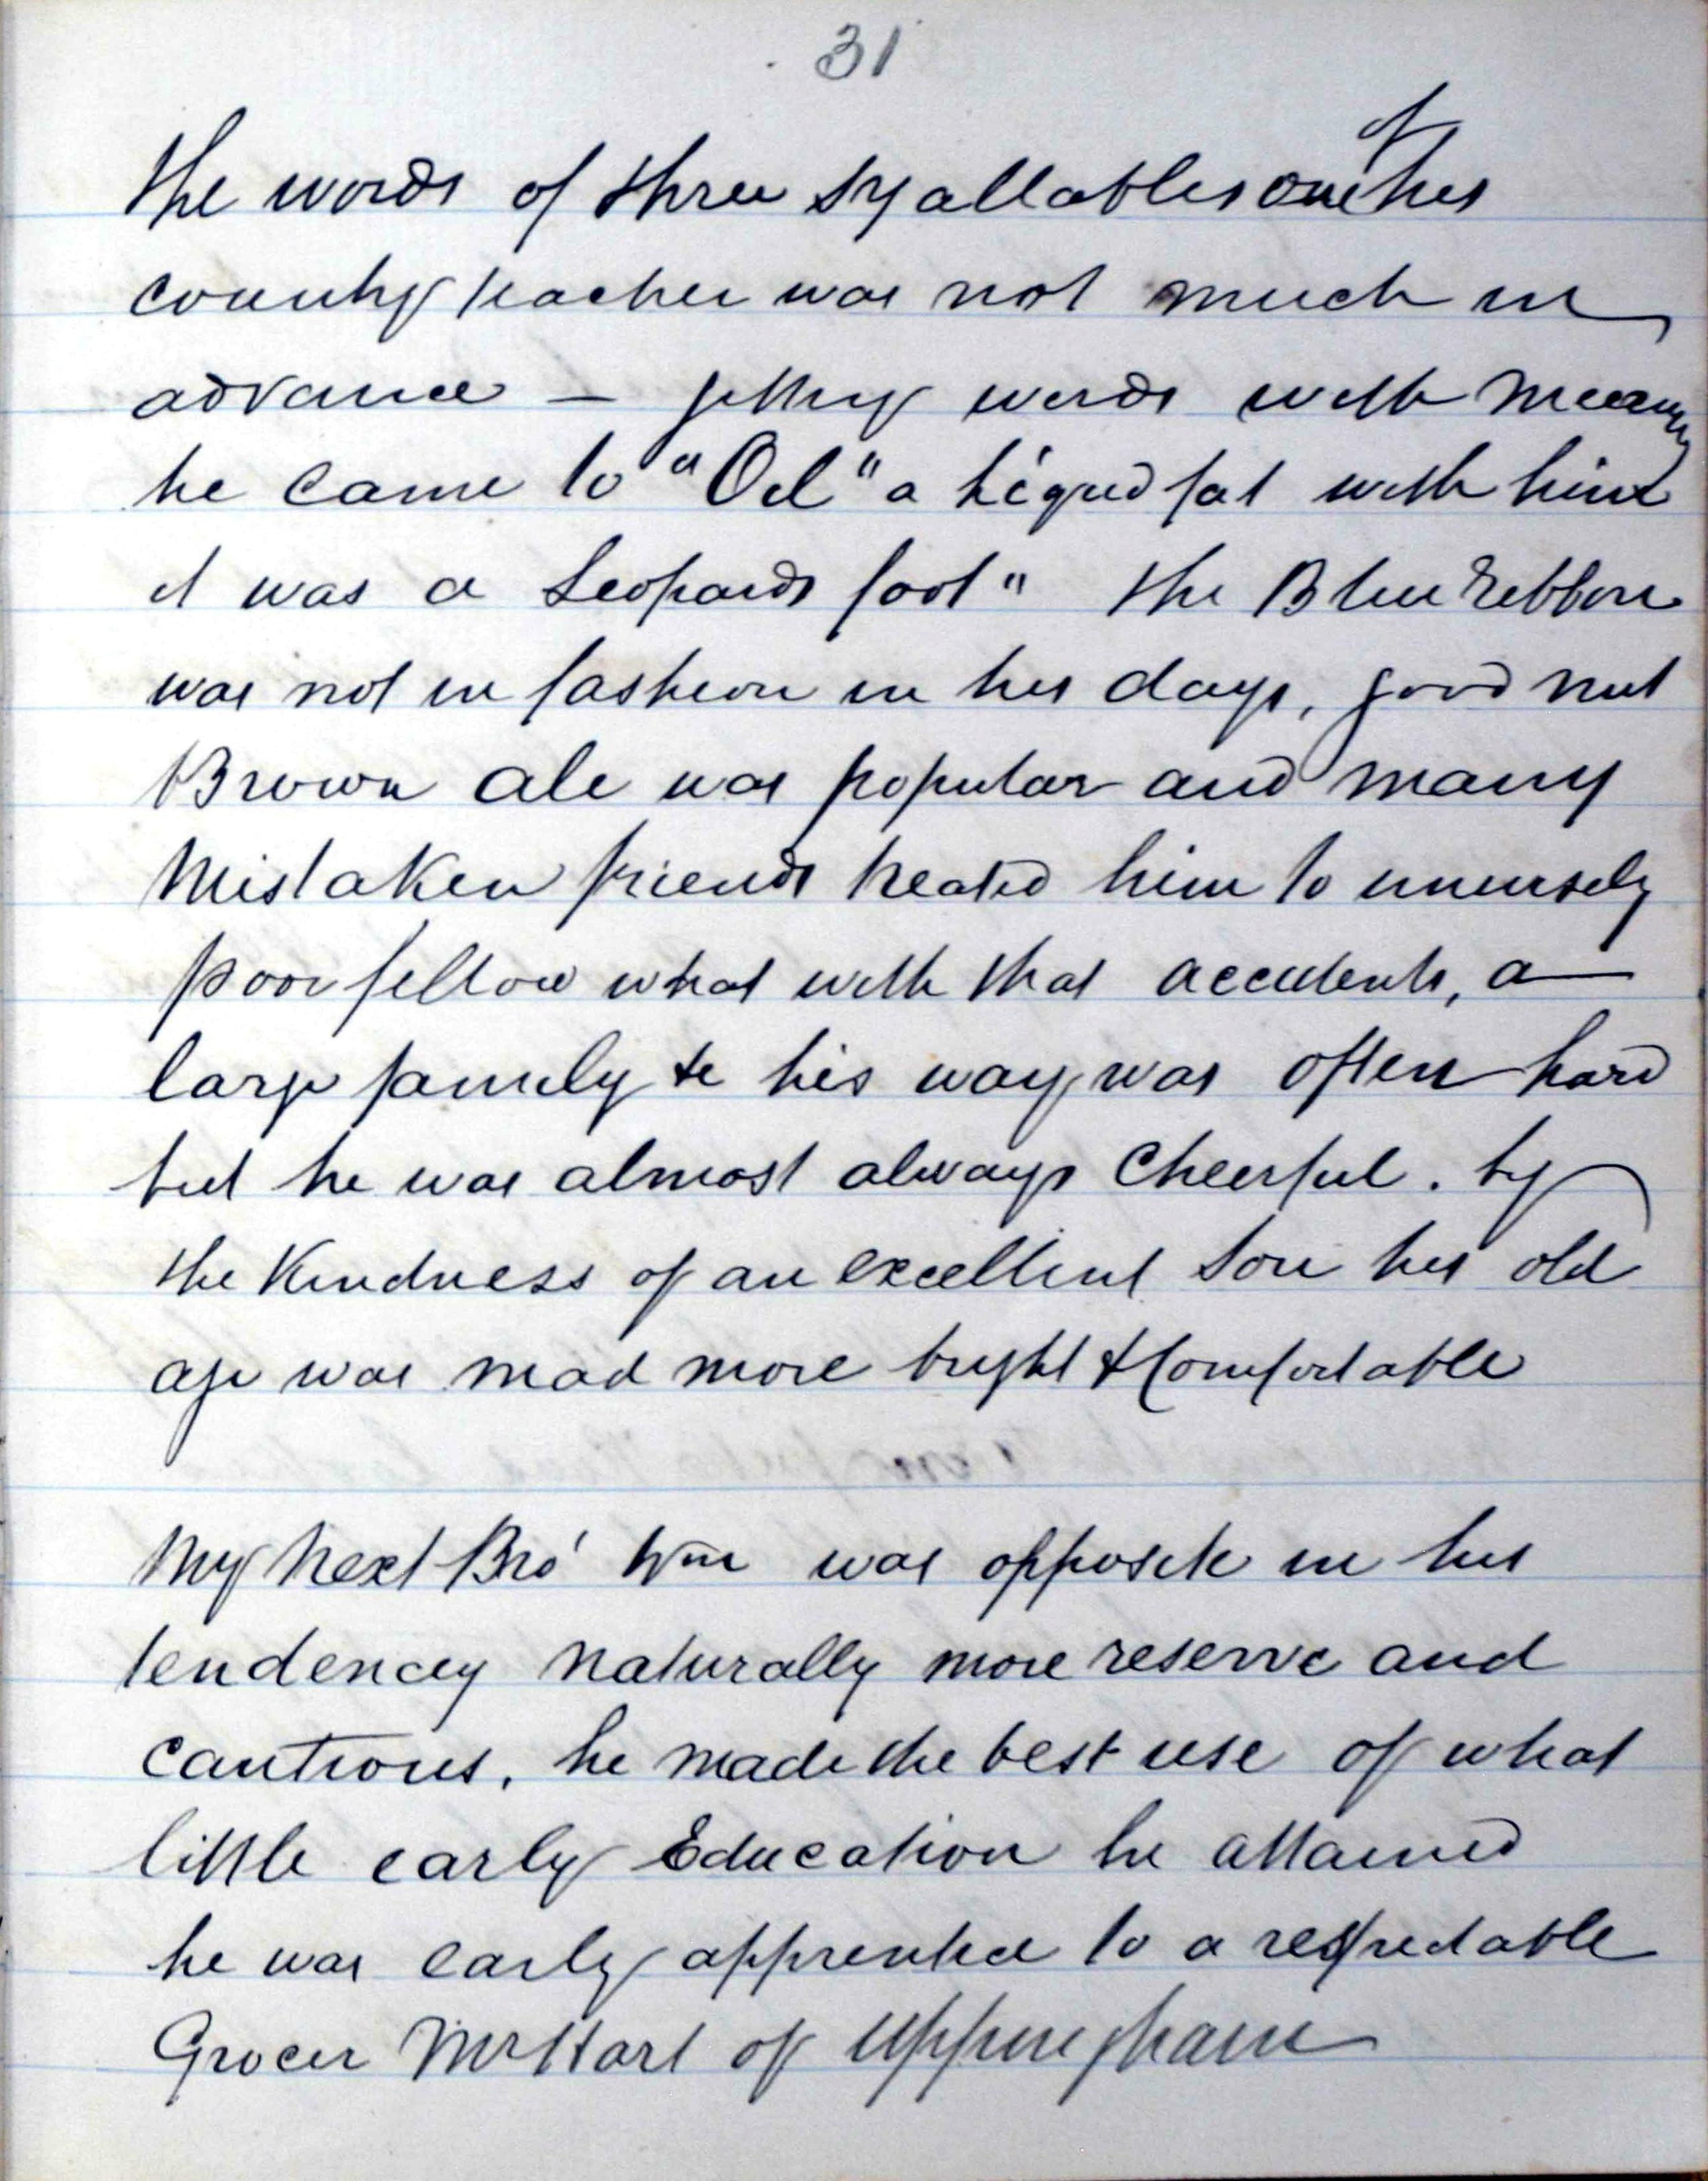 31
the words of three syallables one of his
county teacher was not much in
advance — getting words with meaning
he came to "Oil" a liquid fat with him
it was a Leopards foot" the Blue Ribbon
was not in fashion in his days, good nut
Brown ale was popular and many
Mistaken friends treated him to unwisely
poor fellow what with that accidents, a
large family &c his way was often hard
but he was almost always Cheerful. by
the Kindness of an excellent Son his old
age was mad more bright & Comfortable
My Next Bro' Wm was opposite in his
tendencey Naturally more reserve and
cautious, he made the best use of what
little early Education he attained
he was early apprentice to a respectable
Grocer Mr Hart of Uppingham